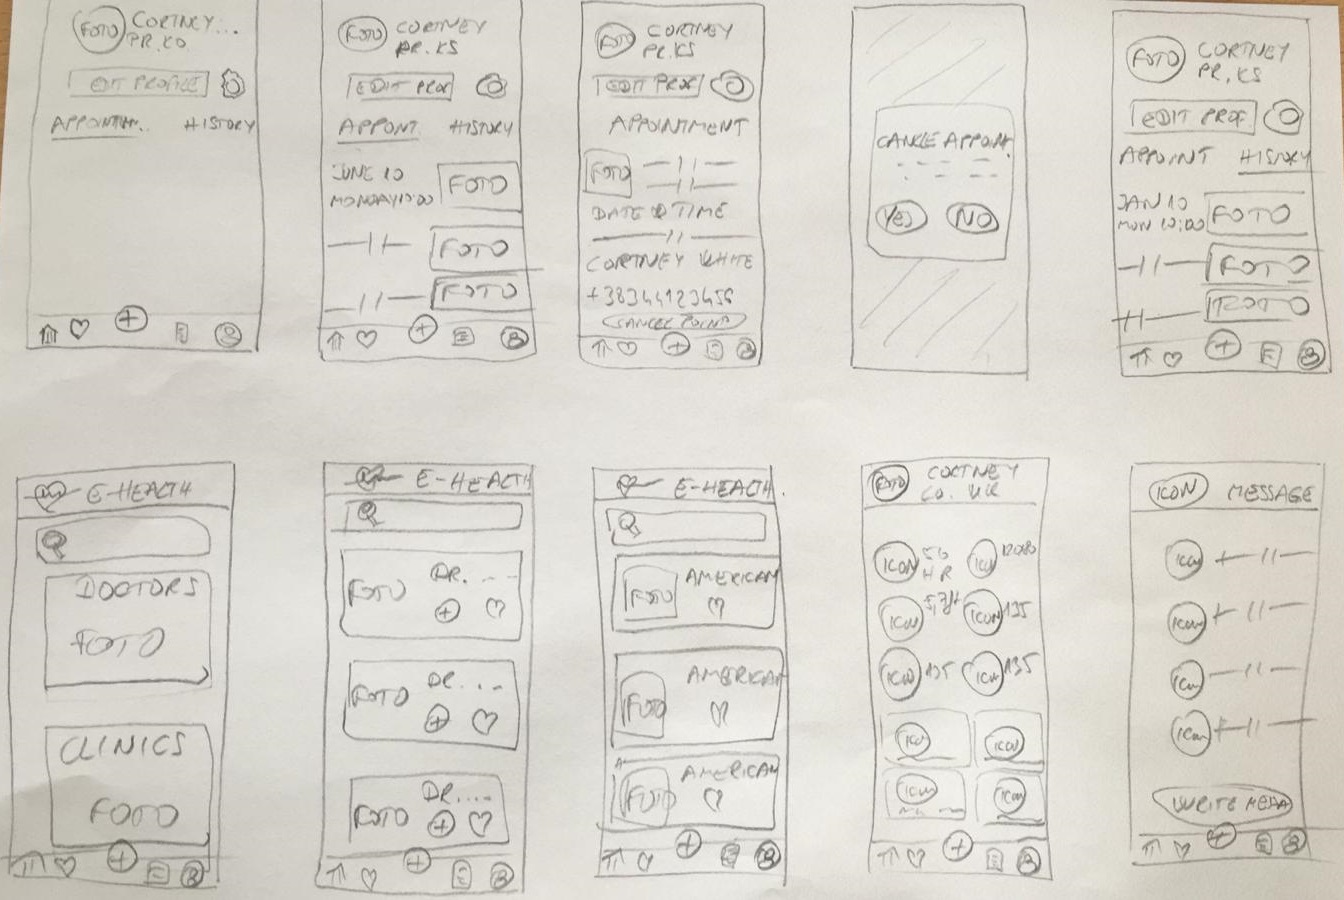 FOTO CORTNEY...
PR. KO
EDIT PROFILE
APPOINTM.. HISTORY
FOTO CORTNEY
PR. KS
EDIT PROF
APPONT HISTORY
JUNE 10
MONDAY 10:00 FOTO
FOTO
FOTO
FOTO CORTNEY
PR. KS
EDIT PROF
APPOINTMENT
FOTO
DATE & TIME
CORTNEY WHITE
+38344123456
CANCEL POINT
CANCLE APPOINT.
YES NO
FOTO CORTNEY
PR, KS
EDIT PROF
APPOINT HISTORY
JAN 10
MON 10:00 FOTO
FOTO
FOTO
E-HEALTH
DOCTORS
FOTO
CLINICS
FOTO
E-HEALTH
FOTO DR. ...
FOTO DR. ...
FOTO DR. ....
E-HEALTH
FOTO AMERICAN
FOTO AMERICAN
FOTO AMERICAN
FOTO CORTNEY
ICON HR ICON
ICON ICON 135
ICON 135 ICON 135
ICON ICON
ICON ICON
ICON MESSAGE
ICON
ICON
ICON
ICON
WRITE